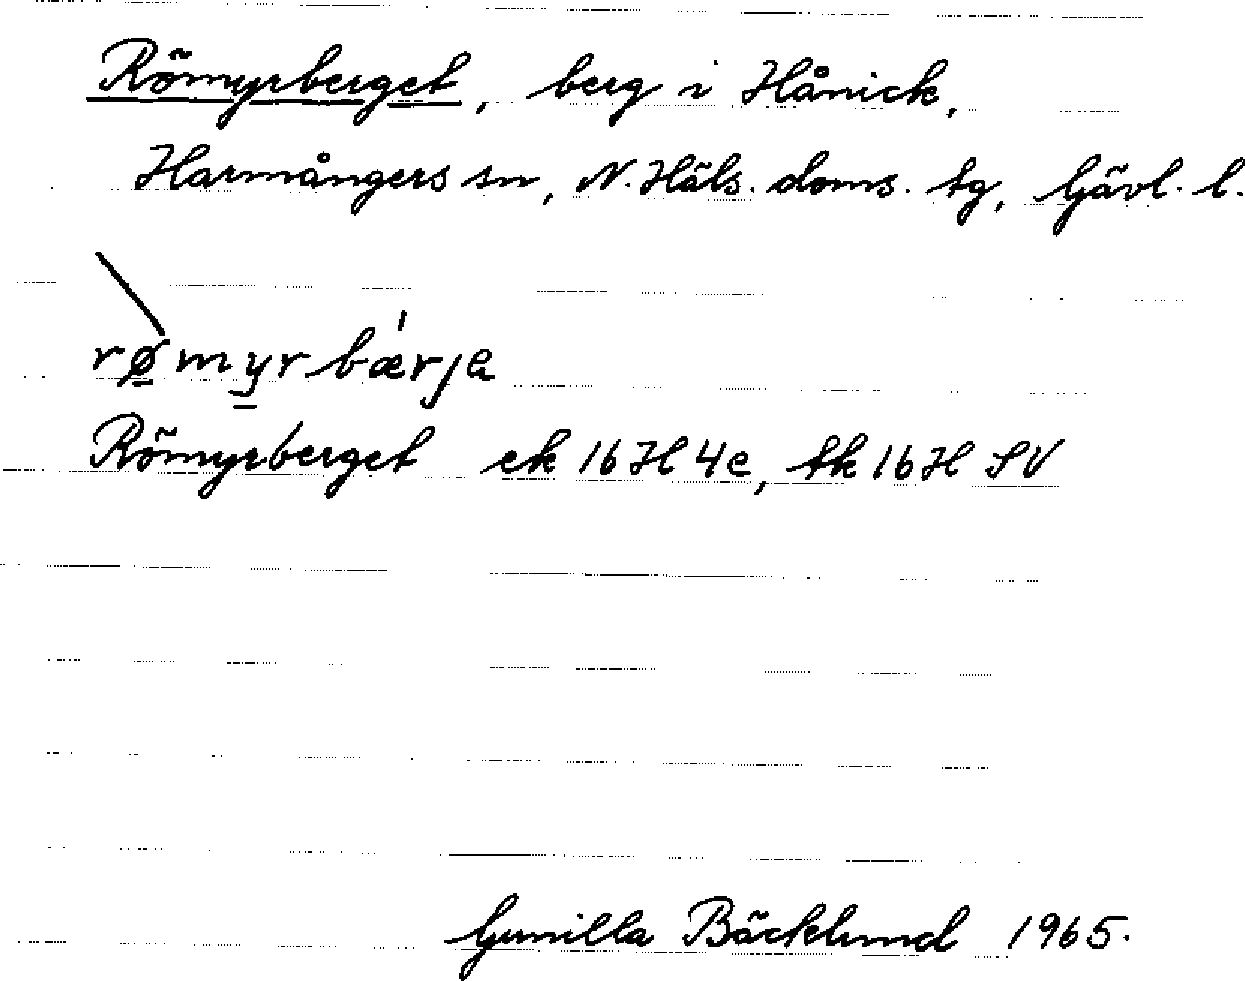 Römyrberget, berg i Hånick,
Harmångers sn, N. Häls. doms. tg, Gävl. l.
rømyrbærja
Römyrberget ek 16H4e, tk 16H SV
Gunilla Bäcklund 1965.